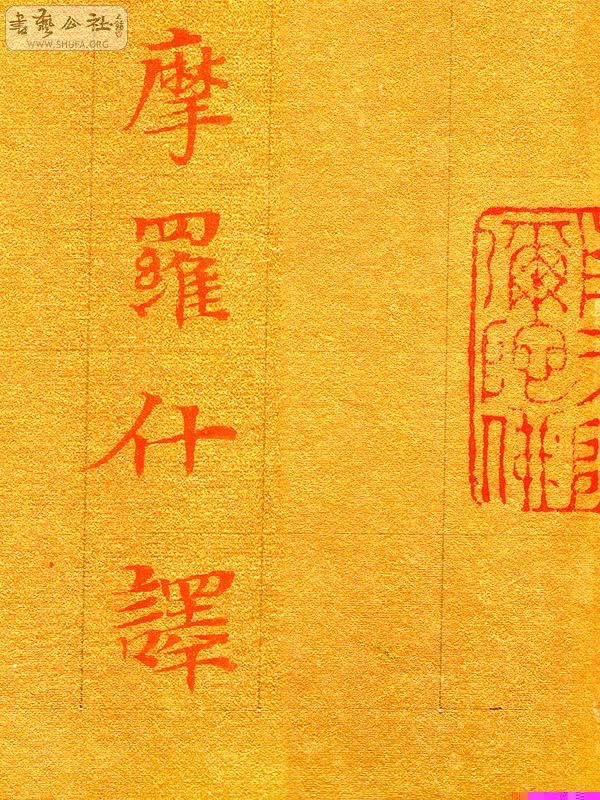 書藝公社
WWW.SHUFA.ORG
彌陀佛
摩羅什譯